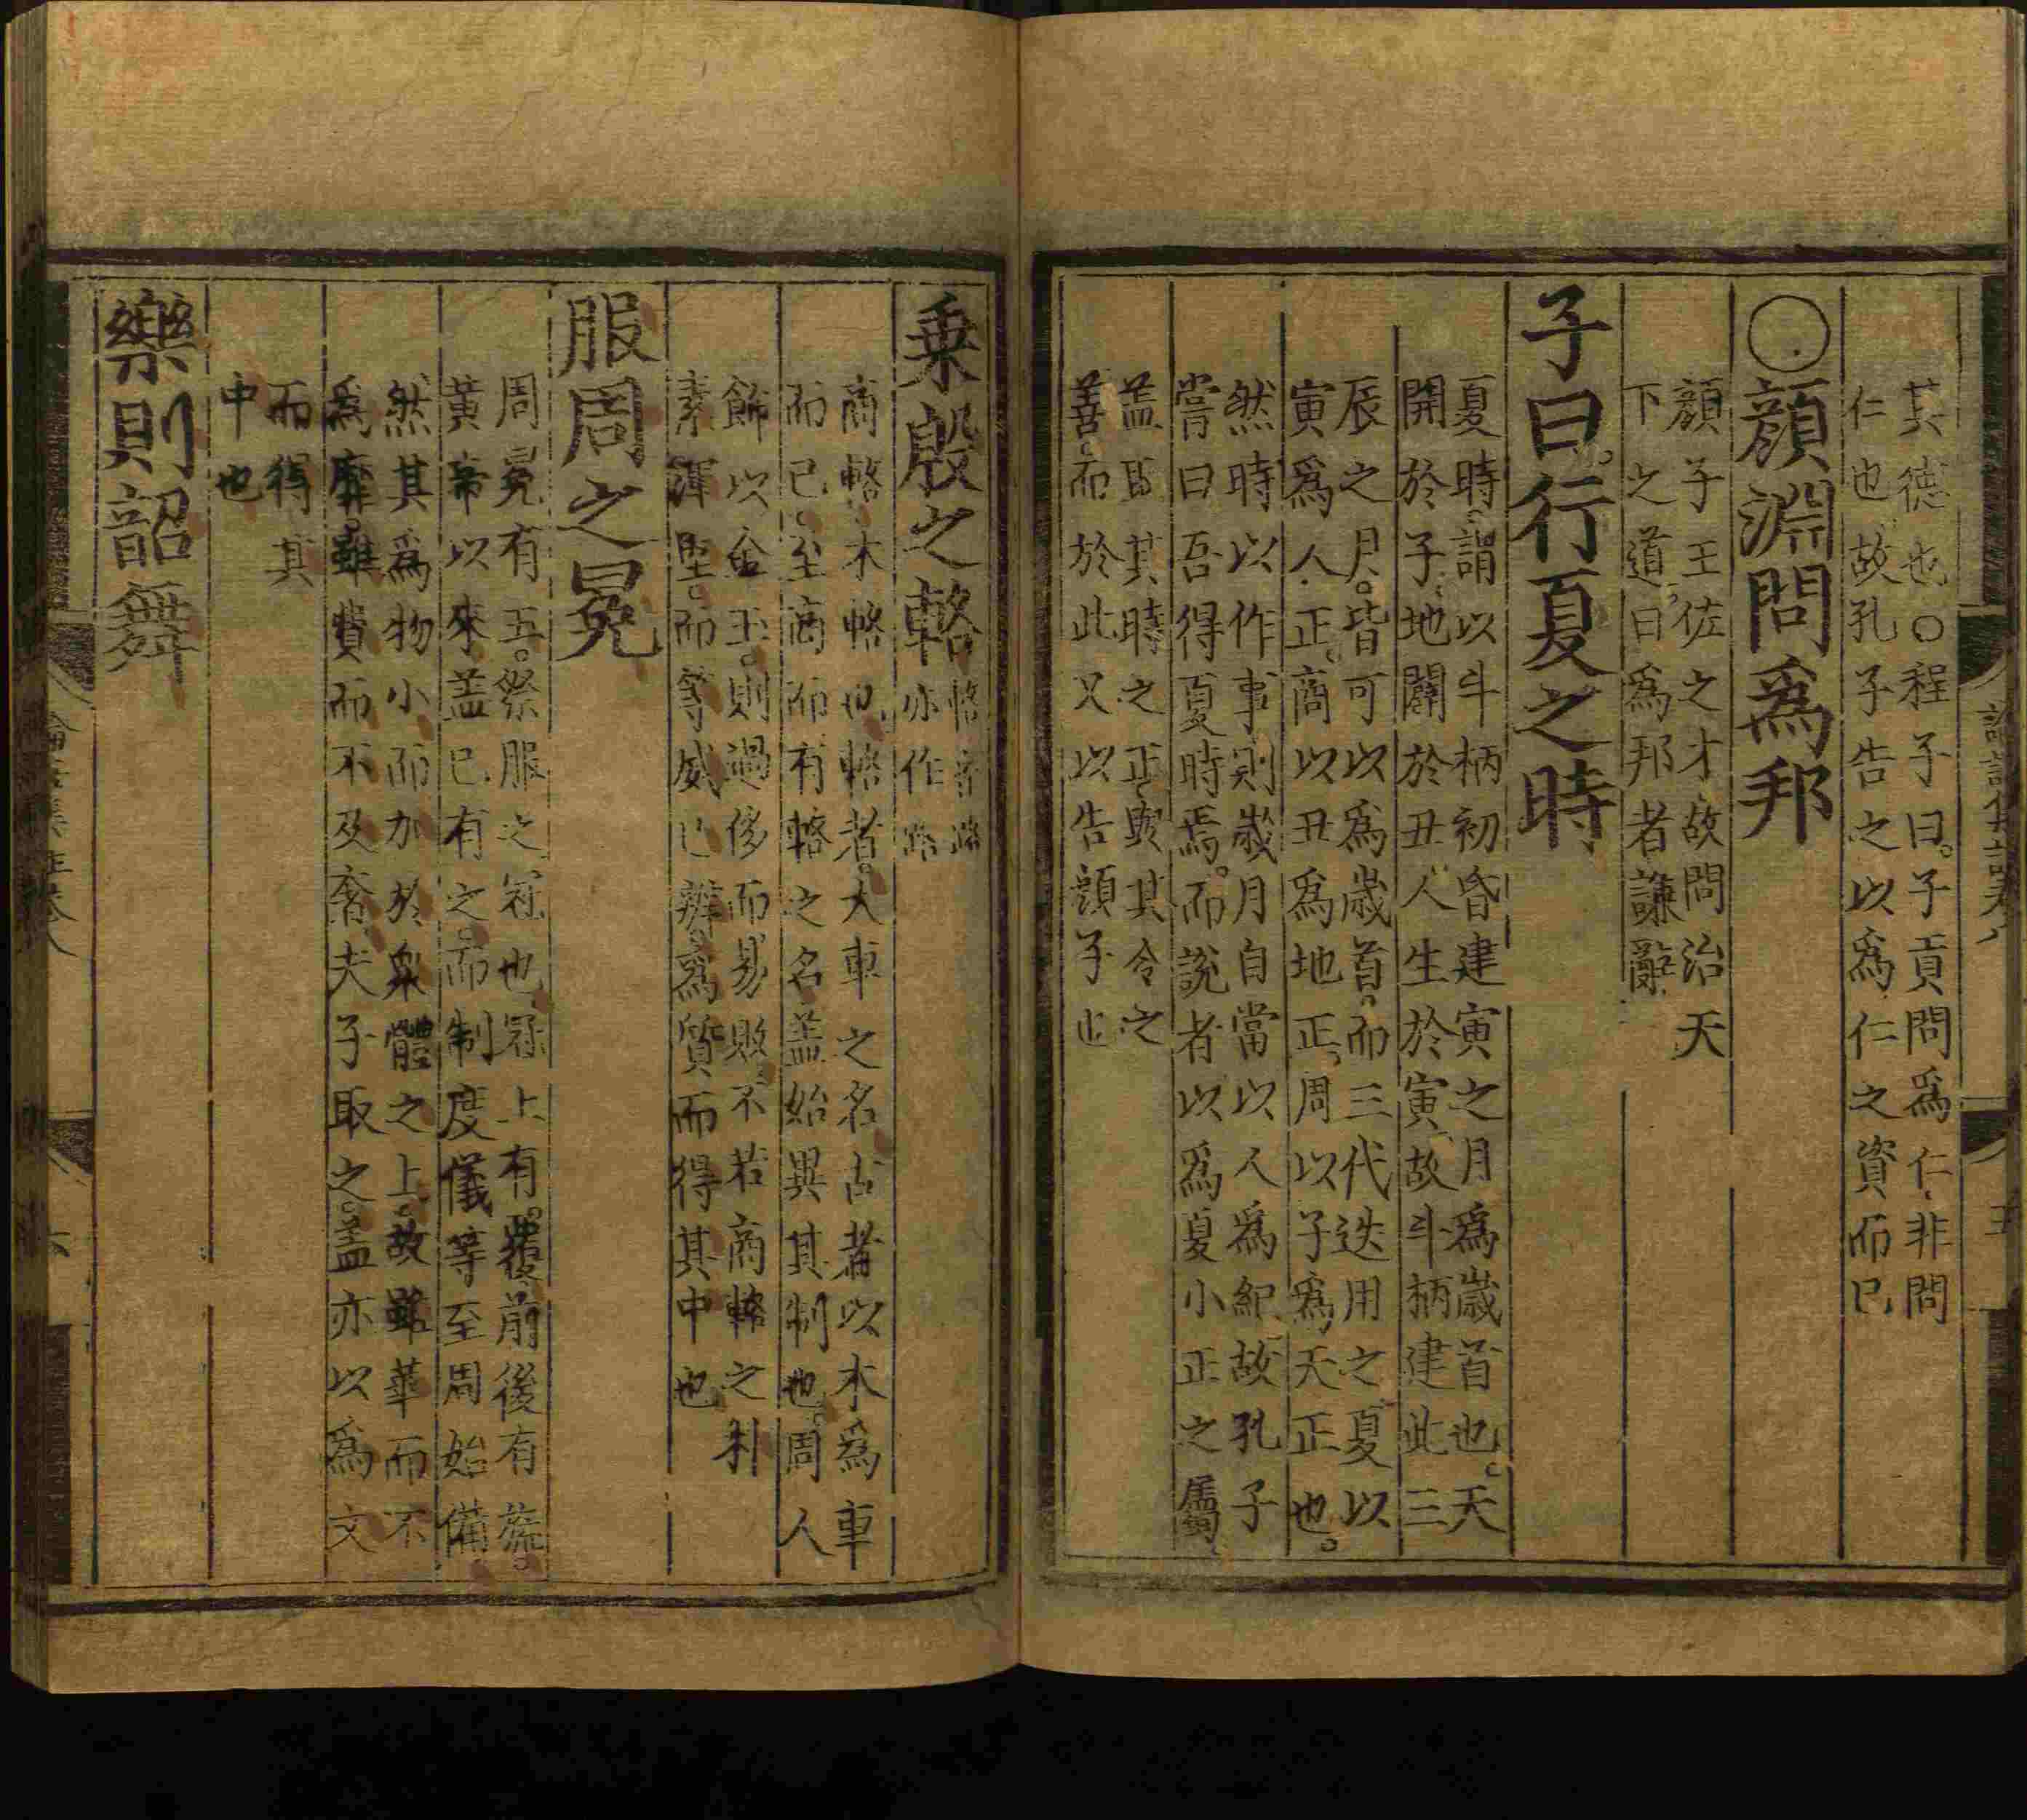 其德也○程子曰子貢問爲仁非問
仁也故孔子告之以爲仁之資而已
○顔淵問爲邦
顔子王佐之才故問治天
下之道曰爲邦者謙辭
子曰行夏之時
夏時謂以斗柄初昏建寅之月爲歲首也天
開於子地闢於丑人生於寅故斗柄建此三
辰之月皆可以爲歲首而三代迭用之夏以
寅爲人正商以丑爲地正周以子爲天正也
然時以作事則歲月自當以人爲紀故孔子
嘗曰吾得夏時焉而說者以爲夏小正之屬
盖取其時之正與其令之
善而於此又以告顔子也
五
乗殷之輅
輅音路
亦作路
商輅木輅也輅者大車之名古者以木爲車
而已至商而有輅之名盖始異其制也周人
飾以金玉則過侈而易敗不若商輅之朴
素渾堅而等威已辨爲質而得其中也
服周之冕
周冕有五祭服之冠也冠上有覆前後有旒
黃帝以來盖已有之而制度儀等至周始備
然其爲物小而加於衆體之上故雖華而不
爲靡雖費而不及奢夫子取之盖亦以爲文
而得其
中也
樂則韶舞
六